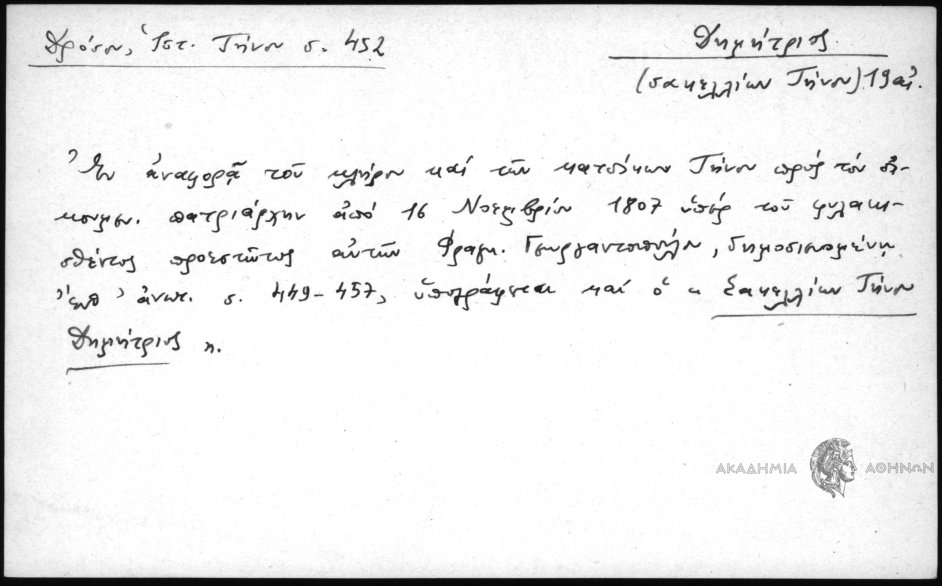 Δρόσου, Ἱστ. Τήνου σ. 452
Δημήτριος
(σακελλίων Τήνου) 19 αἰ.
Ἐν ἀναφορᾷ τοῦ κλήρου καί τῶν κατοίκων Τήνου πρός τόν οἰ-
κουμεν. πατριάρχην ἀπό 16 Νοεμβρίου 1807 ὑπέρ τοῦ φυλακι-
σθέντος προεστῶτος αὐτῶν Φραγκ. Γεωργαντοπούλου, δημοσιευομένῃ
ἔνθ' ἀνωτ. σ. 449-457, ὑπογράφεται καί ὁ « Σακελλίων Τήνου
Δημήτριος ».
ΑΚΑΔΗΜΙΑ ΑΘΗΝΩΝ